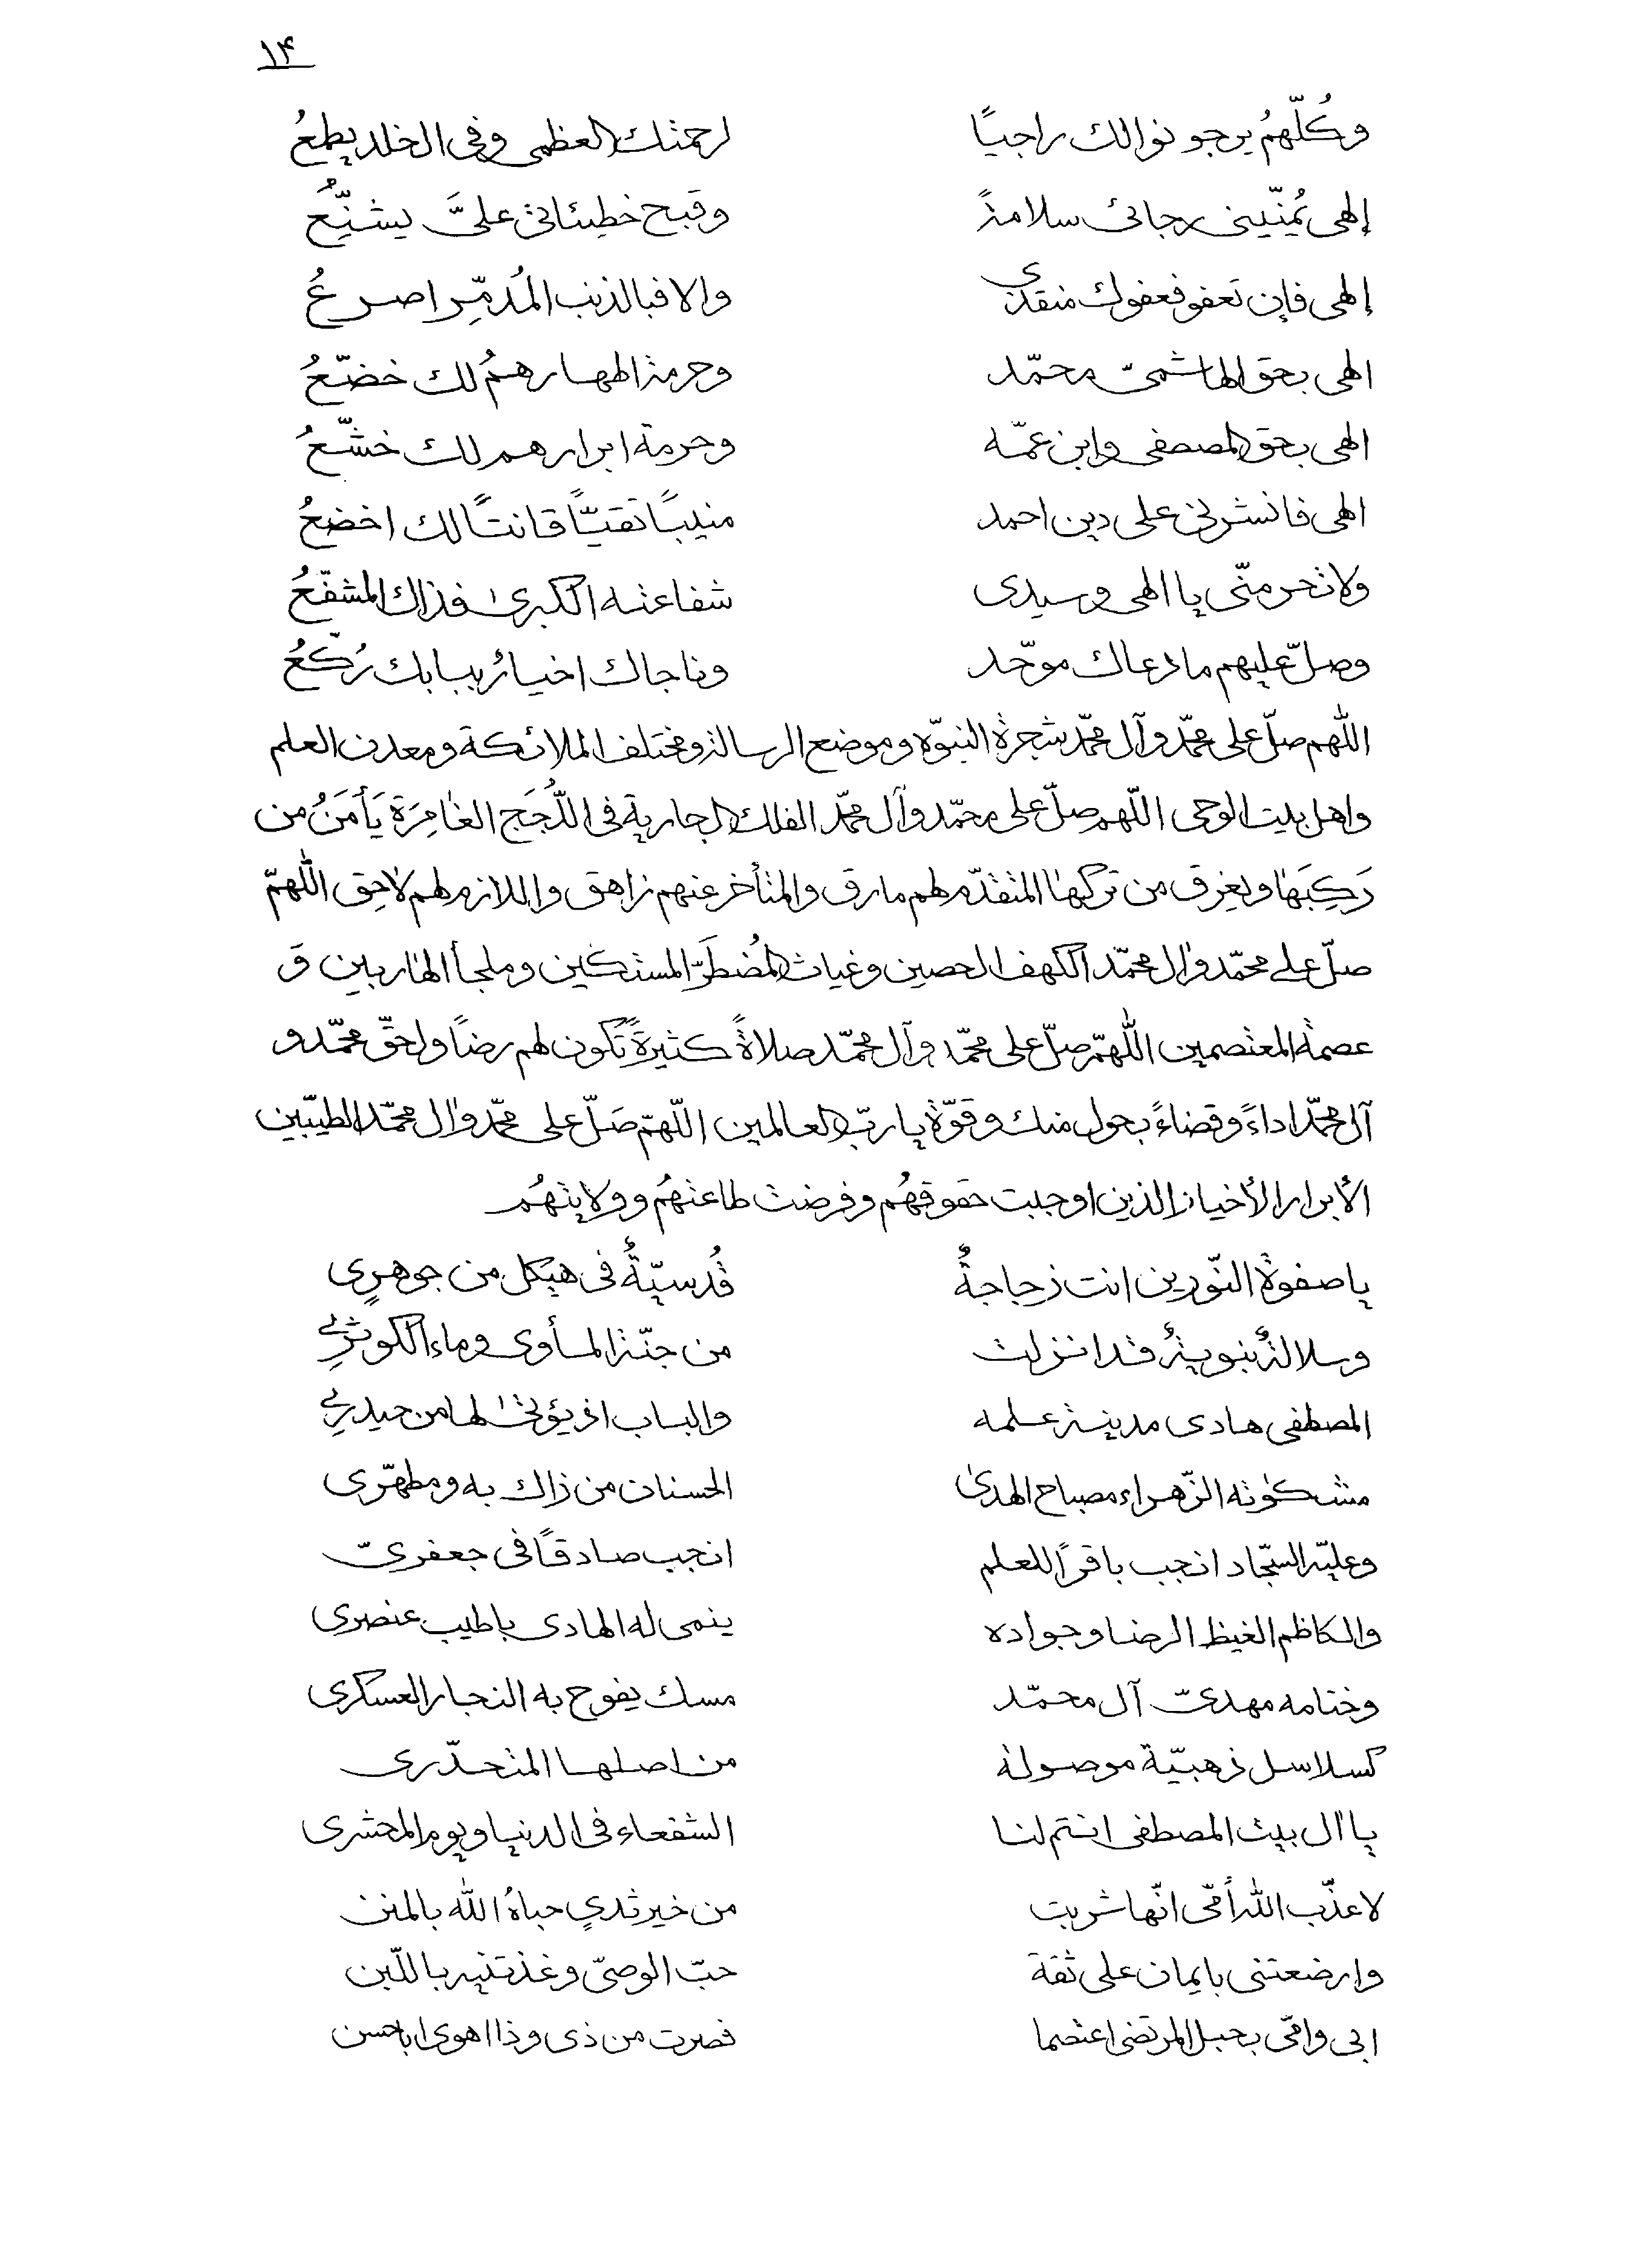 ۱۴
وكُلّهمُ يرجو نوالك راجيًا لرحمتك العظمى وفى الخلد يطمعُ
إلهى يُمنّينى رجائى سلامةً وقبح خطيئاتى علىَّ يشنّعُ
إلهى فإن تعفو فعفوك منقذى والا فبالذنب المُدمِّر اصرعُ
الهى بحق الهاشمىّ محمّد وحرمة اطهارهمُ لك خضّعُ
الهى بحق المصطفى وابن عمّه وحرمة ابرارهم لك خشّعُ
الهى فانشرنى على دين احمد منيبًا تقيّاً قانتًا لك اخضعُ
ولا تحرمنّى يا الهى وسيدى شفاعته الكبرىٰ فذاك المشفّعُ
وصلّ عليهم ما دعاك موحّد وناجاك اخيارُ ببابك رُكّعُ
اللّٰهم صلّ على محمّد وآل محمّد شجرة النبوّة وموضع الرسالة ومختلف الملائكة ومعدن العلم
واهل بيت الوحى اللّهم صلّ على محمّد وآل محمّد الفلك الجارية فى اللُّجَج الغٰامِرَة يَأمَنُ من
رَكِبَهٰا ويغرق من تركهٰا المتقدّم لهم مارق والمتأخر عنهم زاهق واللازم لهم لاٰحِق اللّٰهمّ
صلّ على محمّد واٰل محمّد الكهف الحصين وغياث المُضطَرّ المستكين وملجأ الهٰاربين وَ
عصمة المعتصمين اللّٰهمّ صلّ على محمّد وآل محمّد صلاةً كثيرةً تكون لهم رضاً ولحقّ محمّد و
آل محمّد اداءً وقضاءً بحول منك وقوّة يا ربّ العالمين اللّهمّ صَلّ على محمّد واٰل محمّد الطيبّين
الأبرار الأخيار الذين اوجبت حقوقهُم وفرضت طاعتهُم وولايتهُم
يا صفوة النّورين انت زجاجةٌ قُدسيّةٌ فى هيكل من جوهرٍى
وسلالةٌ نبويةٌ قد انزلت من جنّة المأوى وماء الكوثرِى
المصطفى هادى مدينة علمه والباب اذ يؤتىٰ لها من حيدرِى
مشكوٰته الزّهراء مصباح الهدىٰ الحسنان من ذاك به ومطهّرى
وعليّه السجّاد انجب باقراً للعلم انجب صادقاً فى جعفرىّ
والكاظم الغيظ الرضا وجواده ينمى له الهادى باطيب عنصرى
وختامه مهدىّ آل محمّد مسك يفوح به النجار العسكرى
كسلاسل ذهبيّة موصولة من اصلها المتحدّرى
يا اٰل بيت المصطفى انتم لنا الشفعاء فى الدنيا ويوم المحشرى
لا عذّب اللّٰه أمّى انّها شربت من خير ثدىٍ حباهُ اللّٰه بالمنن
وارضعتنى بايمان على ثقة حبّ الوصىّ وغذتنيه باللّبن
ابى وامّى بحبل المرتضى اعتصما فصرت من ذى وذا اهوى اباحسن